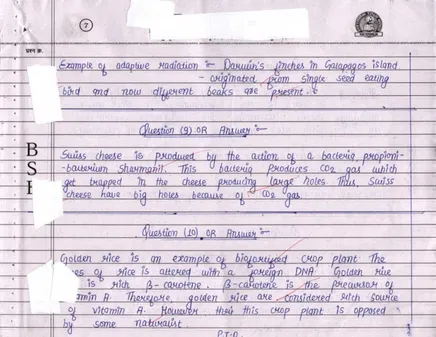 7
प्रश्न क्र.
Example of adaptive radiation :- Darwin's finches in Galapagos island
- originated from single seed eating
bird and now different beaks are present.
Question (9) OR Answer :-
B
S
Swiss cheese is produced by the action of a bacteria propioni-
-bacterium Sharmanii. This bacteria produces CO2 gas which
get trapped in the cheese producing large holes. Thus, Swiss
cheese have big holes because of CO2 gas.
Question (10) OR Answer :-
Golden rice is an example of biofortified crop plant. The
of rice is altered with a foreign DNA. Golden rice
is rich β-carotene. β-carotene is the precursor of
A. Therefore, golden rice are considered rich source
of vitamin A. However this crop plant is opposed
by some naturalist.
P.T.O.